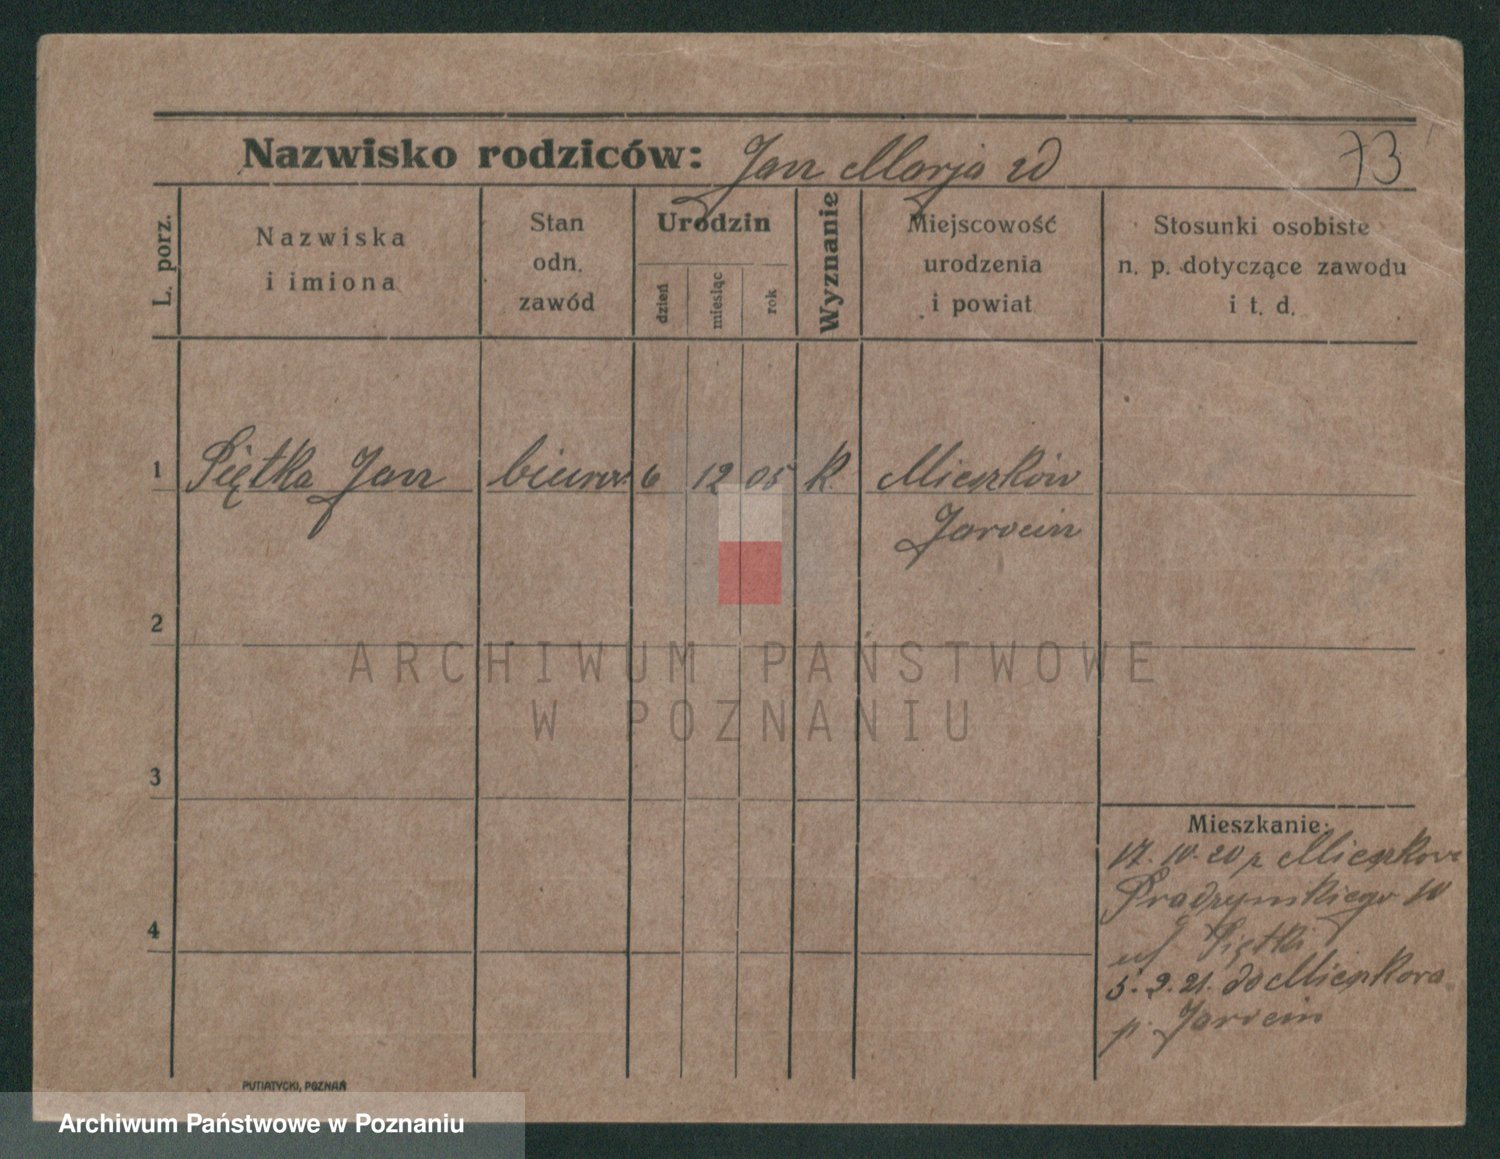 Nazwisko rodziców: Jan Marja zd
73
L. porz.
Nazwiska
i imiona
Stan
odn.
zawód
Urodzin
dzień
miesiąc
rok
Wyznanie
Miejscowość
urodzenia
i powiat
Stosunki osobiste
n. p. dotyczące zawodu
i t. d.
1 Piętka Jan biurow. 6 12 05 k. Mieszków
Jarocin
2
ARCHIWUM PAŃSTWOWE
W POZNANIU
3
Mieszkanie:
17. 10. 20 z Mieszkowa
Prądzyńskiego 10
4
Piętki
5. 2. 21. do Mieszkowa
p. Jarocin
PUTIATYCKI, POZNAŃ
Archiwum Państwowe w Poznaniu